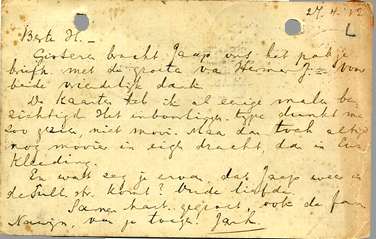 27.4.12
L
Beste H. –
Gisteren bracht Jaap ons het pakje
briefk. met de groeten van Voor
beide vriendelijk dank
De kaarten heb ik al eenige malen be
zichtigd Het type dunkt me
zoo gezien, niet mooi. Maar dan toch altijd
nog mooier in eigen dracht, dan in Eur.
kleeding.
En wat zeg je ervan, dat Jaap weer in
de str. komt? Beide liefde.
Samen hart. gegroet, ook de fam
van je